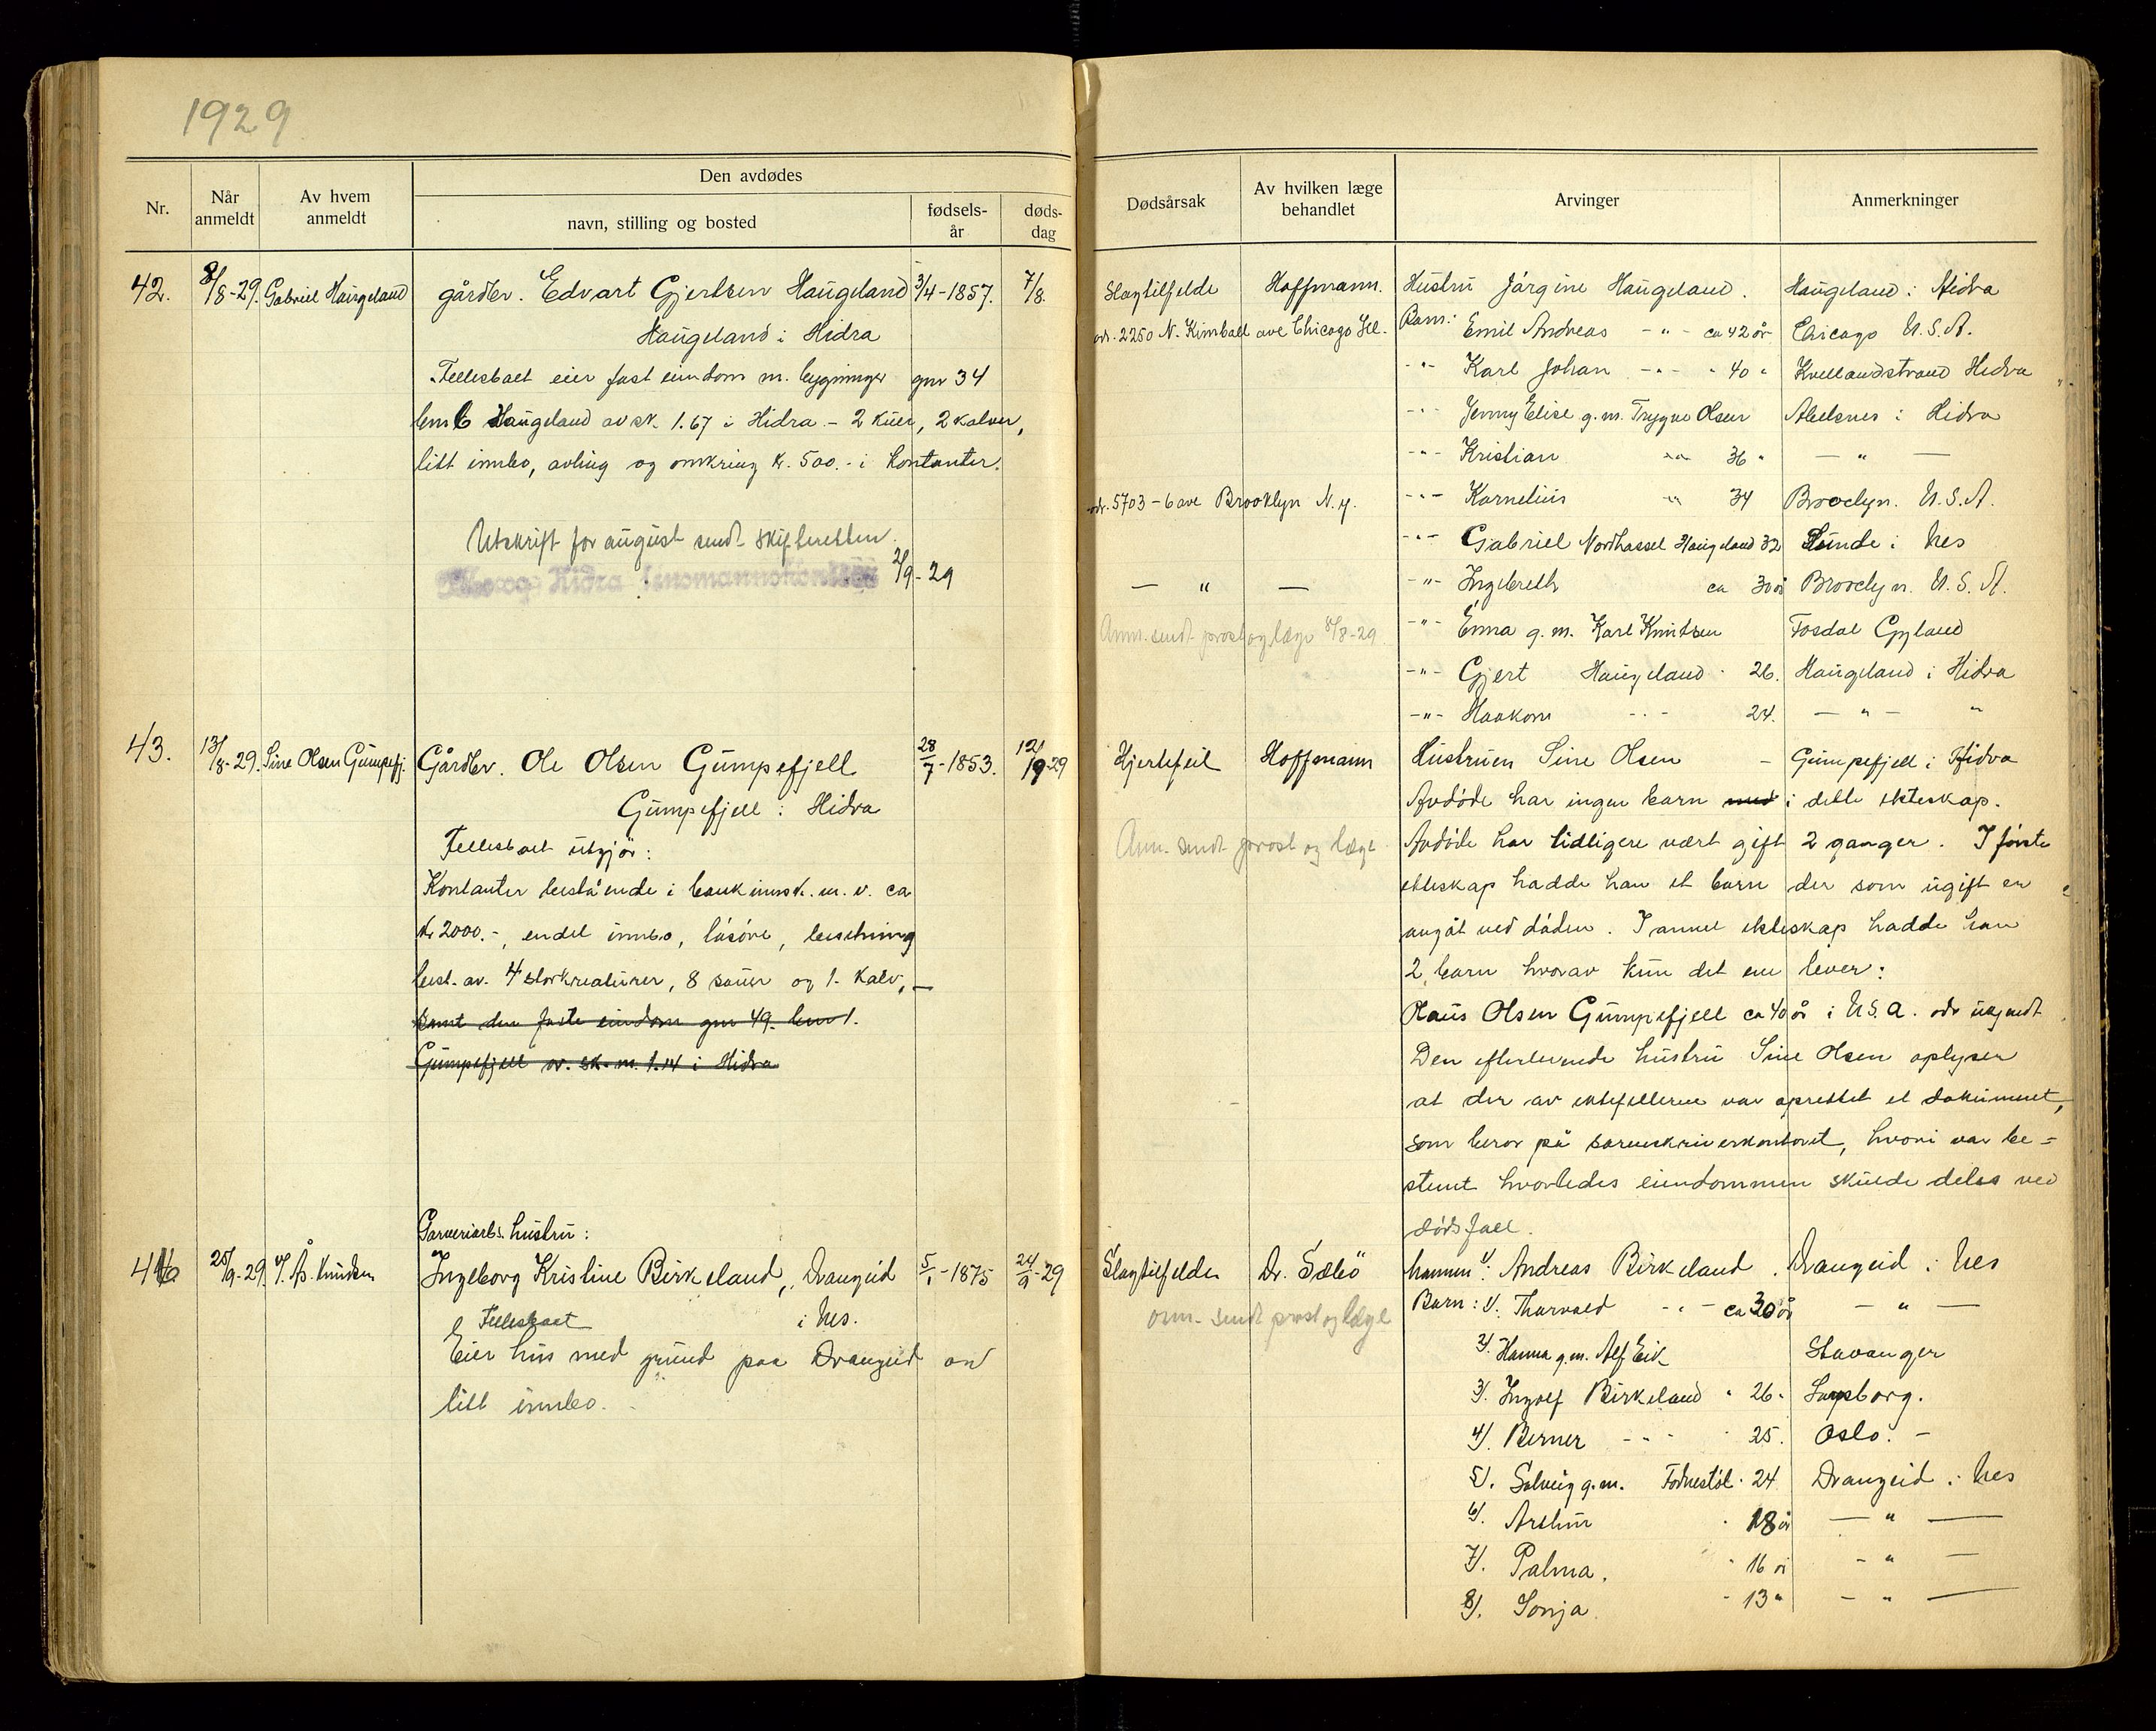 1929
Nr.
Når anmeldt
Av hvem anmeldt
Den avdødes
navn, stilling og bosted
fødsels-år
døds-dag
Dødsårsak
Av hvilken læge behandlet
Arvinger
Anmerkninger
42. 8/8-29. Gabriel Haugeland gårdbr. Edvart Gjertsen Haugeland 3/4-1857. 7/8.
Haugeland i Hidra
Fellesboet eier fast eiendom m. bygninger gnr 34
bnr 6 Haugeland av sk. 1.67 i Hidra - 2 kuer, 2 kalver,
litt innbo, avling og omkring kr. 500.- i kontanter.
Utskrift for august sendt skifteretten
2/9-29
43. 13/8-29. Sine Olsen Gumpefj. Gårdbr. Ole Olsen Gumpefjell 28/7-1853. 12/9-29
Gumpefjell i Hidra
Fellesboet utgjør:
Kontanter bestående i bankinnsk. m. v. ca
kr 2000.-, endel innbo, løsøre, besetning
best. av. 4 storkreaturer, 8 sauer og 1. kalv, -
samt den faste eiendom gnr 49. bnr 1.
Gumpefjell av. sk. m. 1.14 i Hidra
Garveriarb. hustru:
44 25/9-29. Ås. Knudsen Ingeborg Kristine Birkeland, Drangeid 5/1-1875 24/9-29
Fellesboet i Nes.
Eier hus med grund paa Drangeid og
litt innbo.
Slagtilfelde Hoffmann. Hustru Jørgine Haugeland. Haugeland i Hidra
adr. 2250 N. Kimball ave Chicago Ill. Barn: Emil Andreas -"- ca 42 år Chicago U.S.A.
-"- Karl Johan -"- " 40 " Kvellandstrand Hidra
-"- Jenny Elise g.m. Trygve Olsen Abelsnes i Hidra
-"- Kristian -"- 36 " - " -
adr. 5703 - 6 ave Brooklyn N.y. -"- Kornelius -"- 34 Brooclyn. U.S.A.
-"- Gabriel Nordhassel Haugeland 32 Sunde i Nes
- " - -"- Ingebreth ca 30 år Brooclyn. U.S.A.
Anm. sendt prost og læge 8/8-29 -"- Emma g.m. Karl Knutsen Fosdal Gyland
-"- Gjert Haugeland " 26. Haugeland i Hidra
-"- Haakon -"- 24. - " - "
Hjertefeil Hoffmann Hustruen Sine Olsen - Gumpefjell i Hidra
Avdøde har ingen barn med i dette ekteskap.
Anm. sendt prost og læge Avdøde har tidligere vært gift 2 ganger. I første
ekteskap hadde han et barn der som ugift er
avgåt ved døden. I annet ekteskap hadde han
2 barn hvorav kun det ene lever:
Olaus Olsen Gumpefjell ca 40 år i U.S.A. adr ukjendt
Den efterlevende hustru Sine Olsen oplyser
at der av ektefellerne var oprettet et dokument,
som beror på sorenskriverkontoret, hvori var be=
stemt hvorledes eiendommen skulde deles ved
dødsfall.
Slagtilfelde Dr. Sæbö Mannen: Andreas Birkeland. Drangeid i Nes
anm. sendt prost og læge Barn: 1/. Thorvald -"- ca 30 år - " -
2/. Hanna g.m. Alf Eik Stavanger
3/. Ingolf Birkeland " 26. Sarpsborg.
4/. Berner -"- " 25. Oslo. -
5/. Solveig g.m. Fodnestöl " 24 Drangeid i Nes
6/. Arthur " 18 år - " -
7/. Palma. " 16 år - " -
8/. Sonja " 13 " - " -